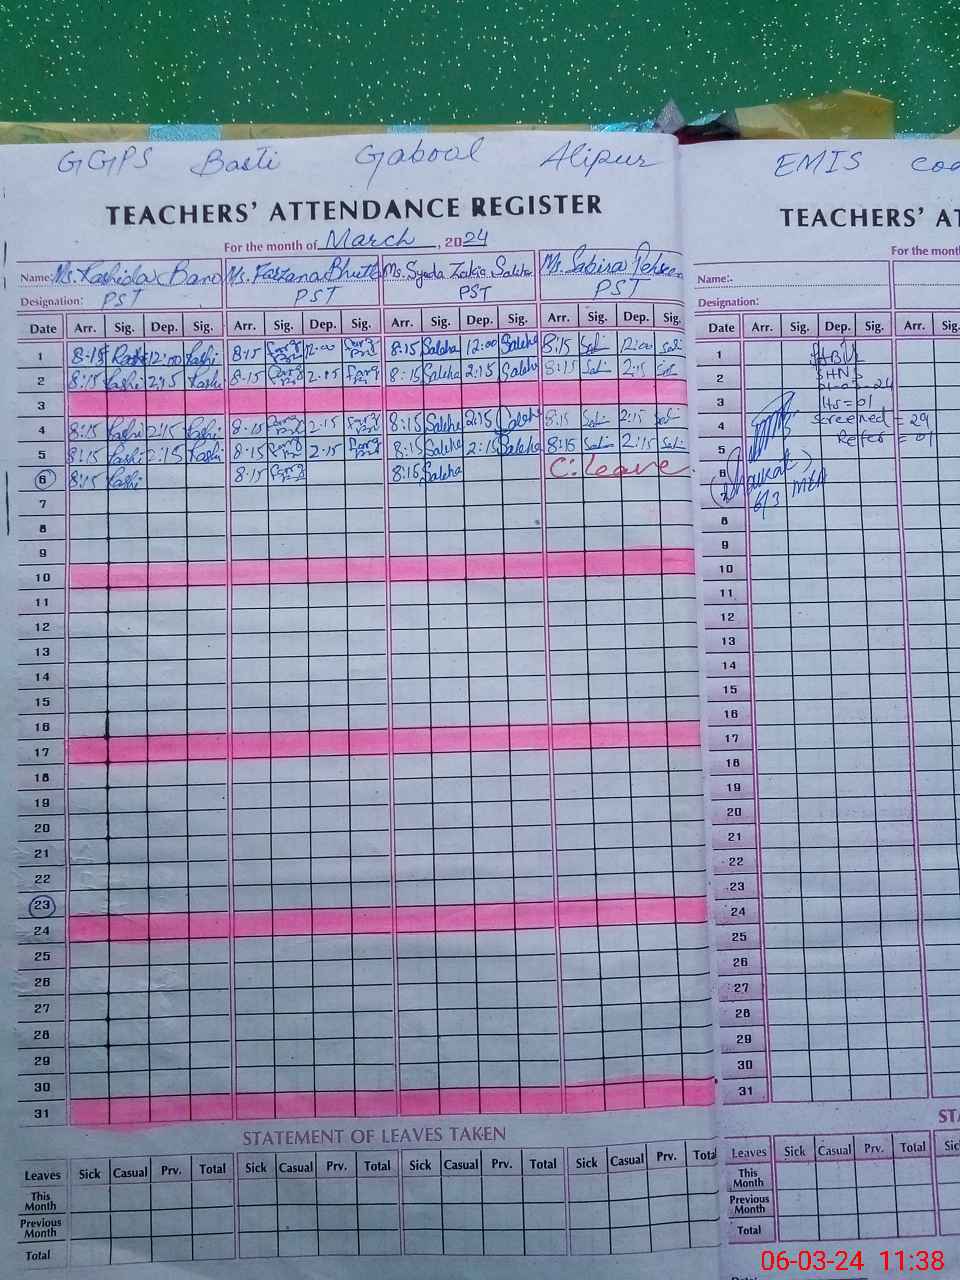 GGPS Basti Gabool Alipur
TEACHERS' ATTENDANCE REGISTER
For the month of March, 2024
Name: Ms. Rashida Bano Ms. Farzana Bhutta Ms. Syeda Zakia Saleha Ms. Sabira Tehseen
Designation: PST PST PST PST
Date Arr. Sig. Dep. Sig. Arr. Sig. Dep. Sig. Arr. Sig. Dep. Sig. Arr. Sig. Dep. Sig.
1 8-15 Rashi 12:00 Rashi 8-15 12:00 8:15 Saleha 12:00 Saleha 8:15 Sab 12:00 Sab
2 8:15 Rashi 2:15 Rashi 8-15 2-15 8:15 Saleha 2:15 Saleha 8:15 Sab 2:15 Sab
3
4 8:15 Rashi 2:15 Rashi 8-15 2-15 8:15 Saleha 2:15 Saleha 8:15 Sab 2:15 Sab
5 8:15 Rashi 2:15 Rashi 8-15 2-15 8:15 Saleha 2:15 Saleha 8:15 Sab 2:15 Sab
6 8:15 Rashi 8:15 8:15 Saleha C. Leave
7
8
9
10
11
12
13
14
15
16
17
18
19
20
21
22
23
24
25
26
27
28
29
30
31
STATEMENT OF LEAVES TAKEN
Leaves Sick Casual Prv. Total Sick Casual Prv. Total Sick Casual Prv. Total Sick Casual Prv. Total
This Month
Previous Month
Total
EMIS
TEACHERS'
For the month
Name:-
Designation:
Date Arr. Sig. Dep. Sig. Arr. Sig.
1
2 SHNS
3 HS=01
4 Screened = 29
5 Refer = 01
6
7 6/3
8
9
10
11
12
13
14
15
16
17
18
19
20
21
22
23
24
25
26
27
28
29
30
31
Leaves Sick Casual Prv. Total
This Month
Previous Month
Total
06-03-24 11:38